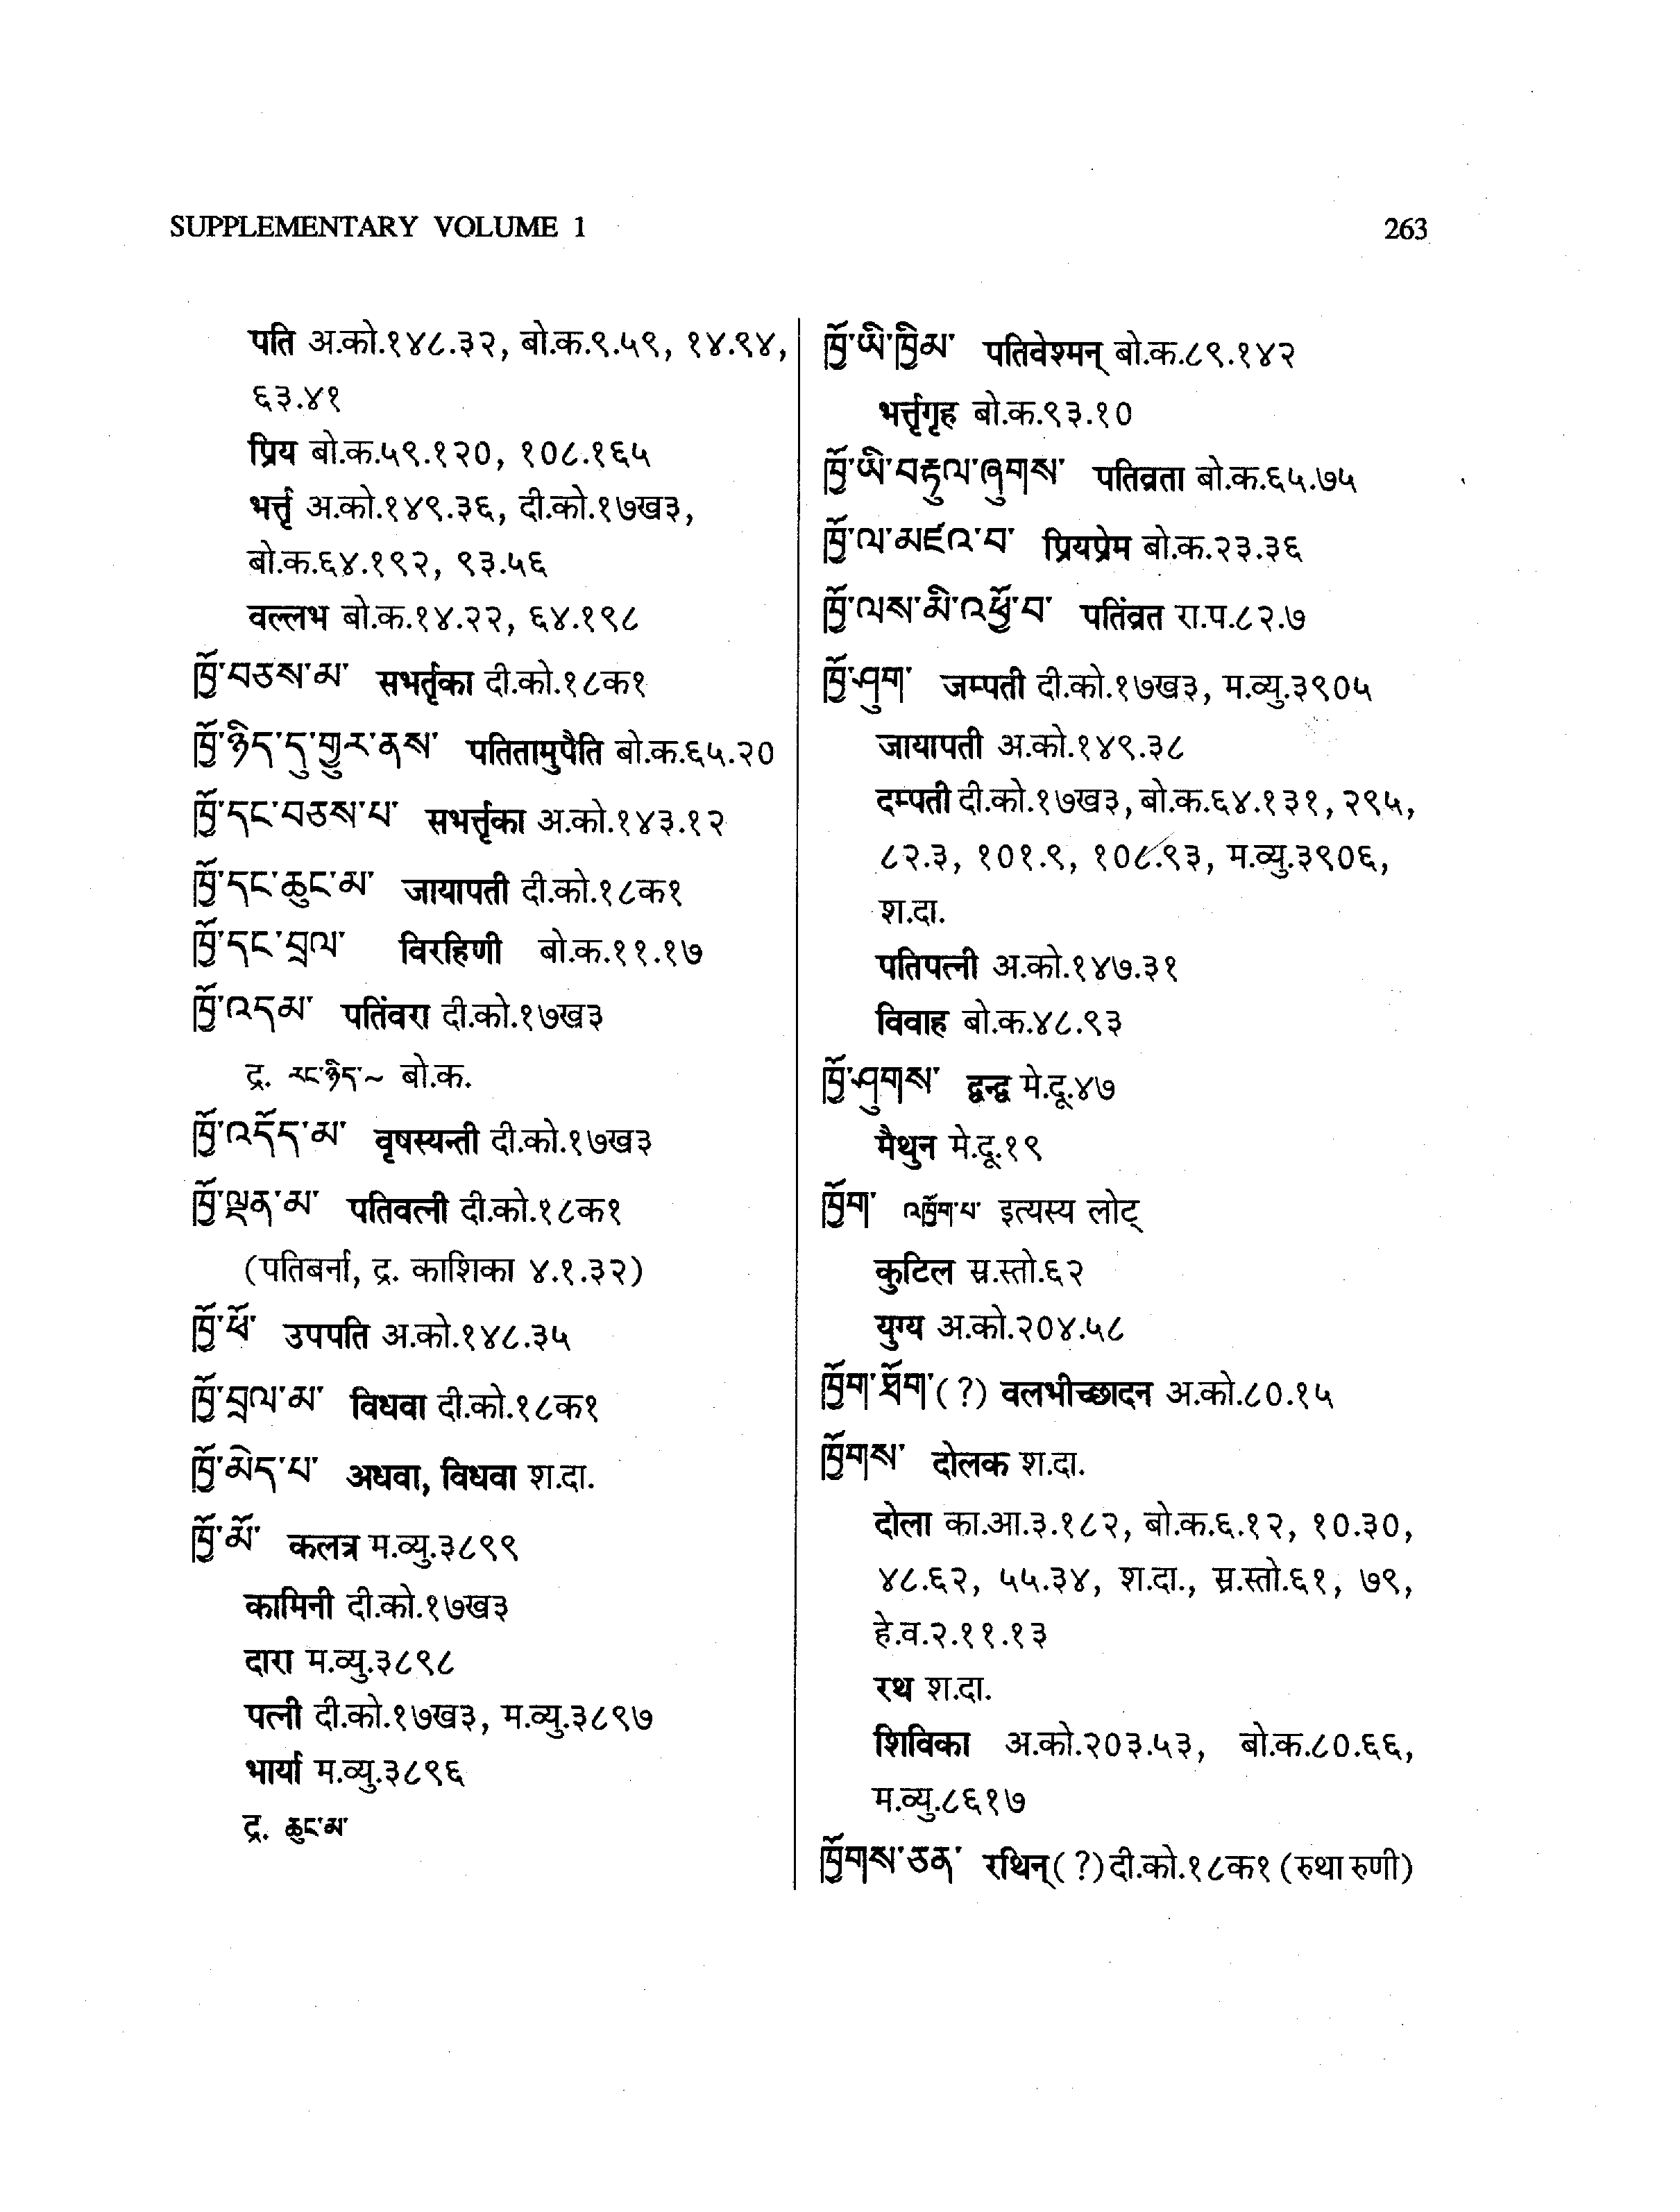 SUPPLEMENTARY VOLUME 1
263
पति अ.को.१४८.३२, बो.क.९.५९, १४.९४,
६३.४१
प्रिय बो.क.५९.१२०, १०८.१६५
भर्त्तृ अ.को.१४९.३६, दी.को.१७ख३,
बो.क.६४.१९२, ९३.५६
वल्लभ बो.क.१४.२२, ६४.१९८
ཁྱོ་བཅས་མ་ सभर्तृका दी.को.१८क१
ཁྱོ་ཉིད་དུ་གྱུར་ནས་ पतितामुपैति बो.क.६५.२०
ཁྱོ་དང་བཅས་པ་ सभर्त्तृका अ.को.१४३.१२
ཁྱོ་དང་ཆུང་མ་ जायापती दी.को.१८क१
ཁྱོ་དང་བྲལ་ विरहिणी बो.क.११.१७
ཁྱོ་འདམ་ पतिंवरा दी.को.१७ख३
द्र. རང་ཉིད་~ बो.क.
ཁྱོ་འདོད་མ་ वृषस्यन्ती दी.को.१७ख३
ཁྱོ་ལྡན་མ་ पतिवत्नी दी.को.१८क१
(पतिबर्ना, द्र. काशिका ४.१.३२)
ཁྱོ་ཕོ་ उपपति अ.को.१४८.३५
ཁྱོ་བྲལ་མ་ विधवा दी.को.१८क१
ཁྱོ་མེད་པ་ अधवा, विधवा श.दा.
ཁྱོ་མོ་ कलत्र म.व्यु.३८९९
कामिनी दी.को.१७ख३
दारा म.व्यु.३८९८
पत्नी दी.को.१७ख३, म.व्यु.३८९७
भार्या म.व्यु.३८९६
द्र. ཆུང་མ་
ཁྱོ་ཡི་ཁྱིམ་ पतिवेश्मन् बो.क.८९.१४२
भर्त्तृगृह बो.क.९३.१०
ཁྱོ་ཡི་བརྟུལ་ཞུགས་ पतिव्रता बो.क.६५.७५
ཁྱོ་ལ་མཛའ་བ་ प्रियप्रेम बो.क.२३.३६
ཁྱོ་ལས་མི་འཕྱོ་བ་ पतिंव्रत रा.प.८२.७
ཁྱོ་ཤུག་ जम्पती दी.को.१७ख३, म.व्यु.३९०५
जायापती अ.को.१४९.३८
दम्पती दी.को.१७ख३, बो.क.६४.१३१, २९५,
८२.३, १०१.९, १०८.९३, म.व्यु.३९०६,
श.दा.
पतिपत्नी अ.को.१४७.३१
विवाह बो.क.४८.९३
ཁྱོ་ཤུགས་ द्वन्द्व मे.दू.४७
मैथुन मे.दू.१९
ཁྱོག་ འཁྱོག་པ་ इत्यस्य लोट्
कुटिल स्र.स्तो.६२
युग्य अ.को.२०४.५८
ཁྱོག་ཐོག་(?) वलभीच्छादन अ.को.८०.१५
ཁྱོགས་ दोलक श.दा.
दोला का.आ.३.१८२, बो.क.६.१२, १०.३०,
४८.६२, ५५.३४, श.दा., स्र.स्तो.६१, ७९,
हे.व.२.११.१३
रथ श.दा.
शिविका अ.को.२०३.५३, बो.क.८०.६६,
म.व्यु.८६१७
ཁྱོགས་ཅན་ रथिन्(?)दी.को.१८क१ (रुथा रुणी)